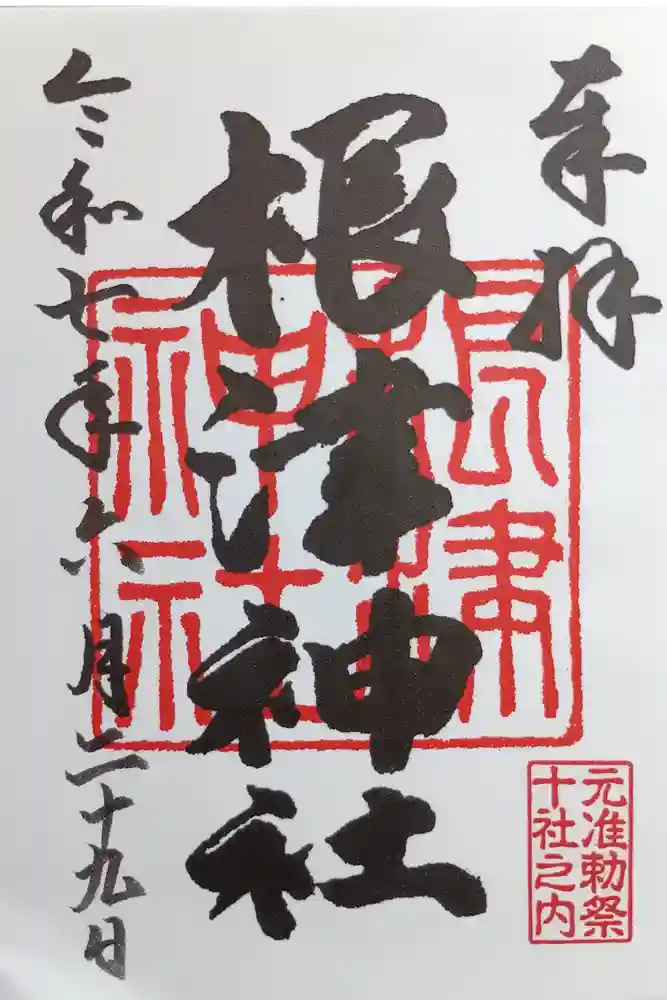 奉拝
根津神社
根津
神社
元准勅祭
十社之内
令和七年六月二十九日